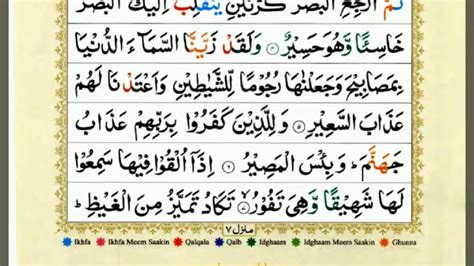 ثُمَّ ارْجِعِ الْبَصَرَ كَرَّتَيْنِ يَنْقَلِبْ اِلَيْكَ الْبَصَرُ
خَاسِئًا وَّهُوَ حَسِيْرٌ ۴ وَلَقَدْ زَيَّنَّا السَّمَآءَ الدُّنْيَا
بِمَصَابِيْحَ وَجَعَلْنٰهَا رُجُوْمًا لِّلشَّيٰطِيْنِ وَاَعْتَدْنَا لَهُمْ
عَذَابَ السَّعِيْرِ ۵ وَ لِلَّذِيْنَ كَفَرُوْا بِرَبِّهِمْ عَذَابُ
جَهَنَّمَ ؕ وَ بِئْسَ الْمَصِيْرُ ۶ اِذَآ اُلْقُوْا فِيْهَا سَمِعُوْا
لَهَا شَهِيْقًا وَّهِيَ تَفُوْرُ ۷ تَكَادُ تَمَيَّزُ مِنَ الْغَيْظِ ؕ
منزل ۷
Ikhfa Ikhfa Meem Saakin Qalqala Qalb Idghaam Idghaam Meem Saakin Ghunna